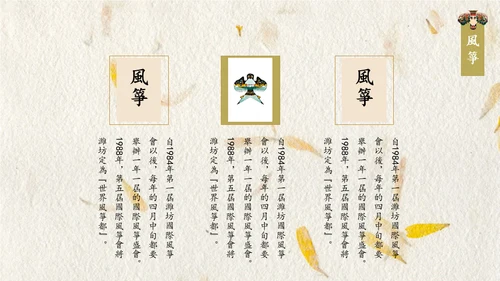 風箏
風箏
自1984年第一屆濰坊國際風箏
會以後，每年的四月中旬都要
舉辦一年一屆的國際風箏盛會。
1988年，第五屆國際風箏會將
濰坊定為「世界風箏都」。
自1984年第一屆濰坊國際風箏
會以後，每年的四月中旬都要
舉辦一年一屆的國際風箏盛會。
1988年，第五屆國際風箏會將
濰坊定為「世界風箏都」。
風箏
自1984年第一屆濰坊國際風箏
會以後，每年的四月中旬都要
舉辦一年一屆的國際風箏盛會。
1988年，第五屆國際風箏會將
濰坊定為「世界風箏都」。